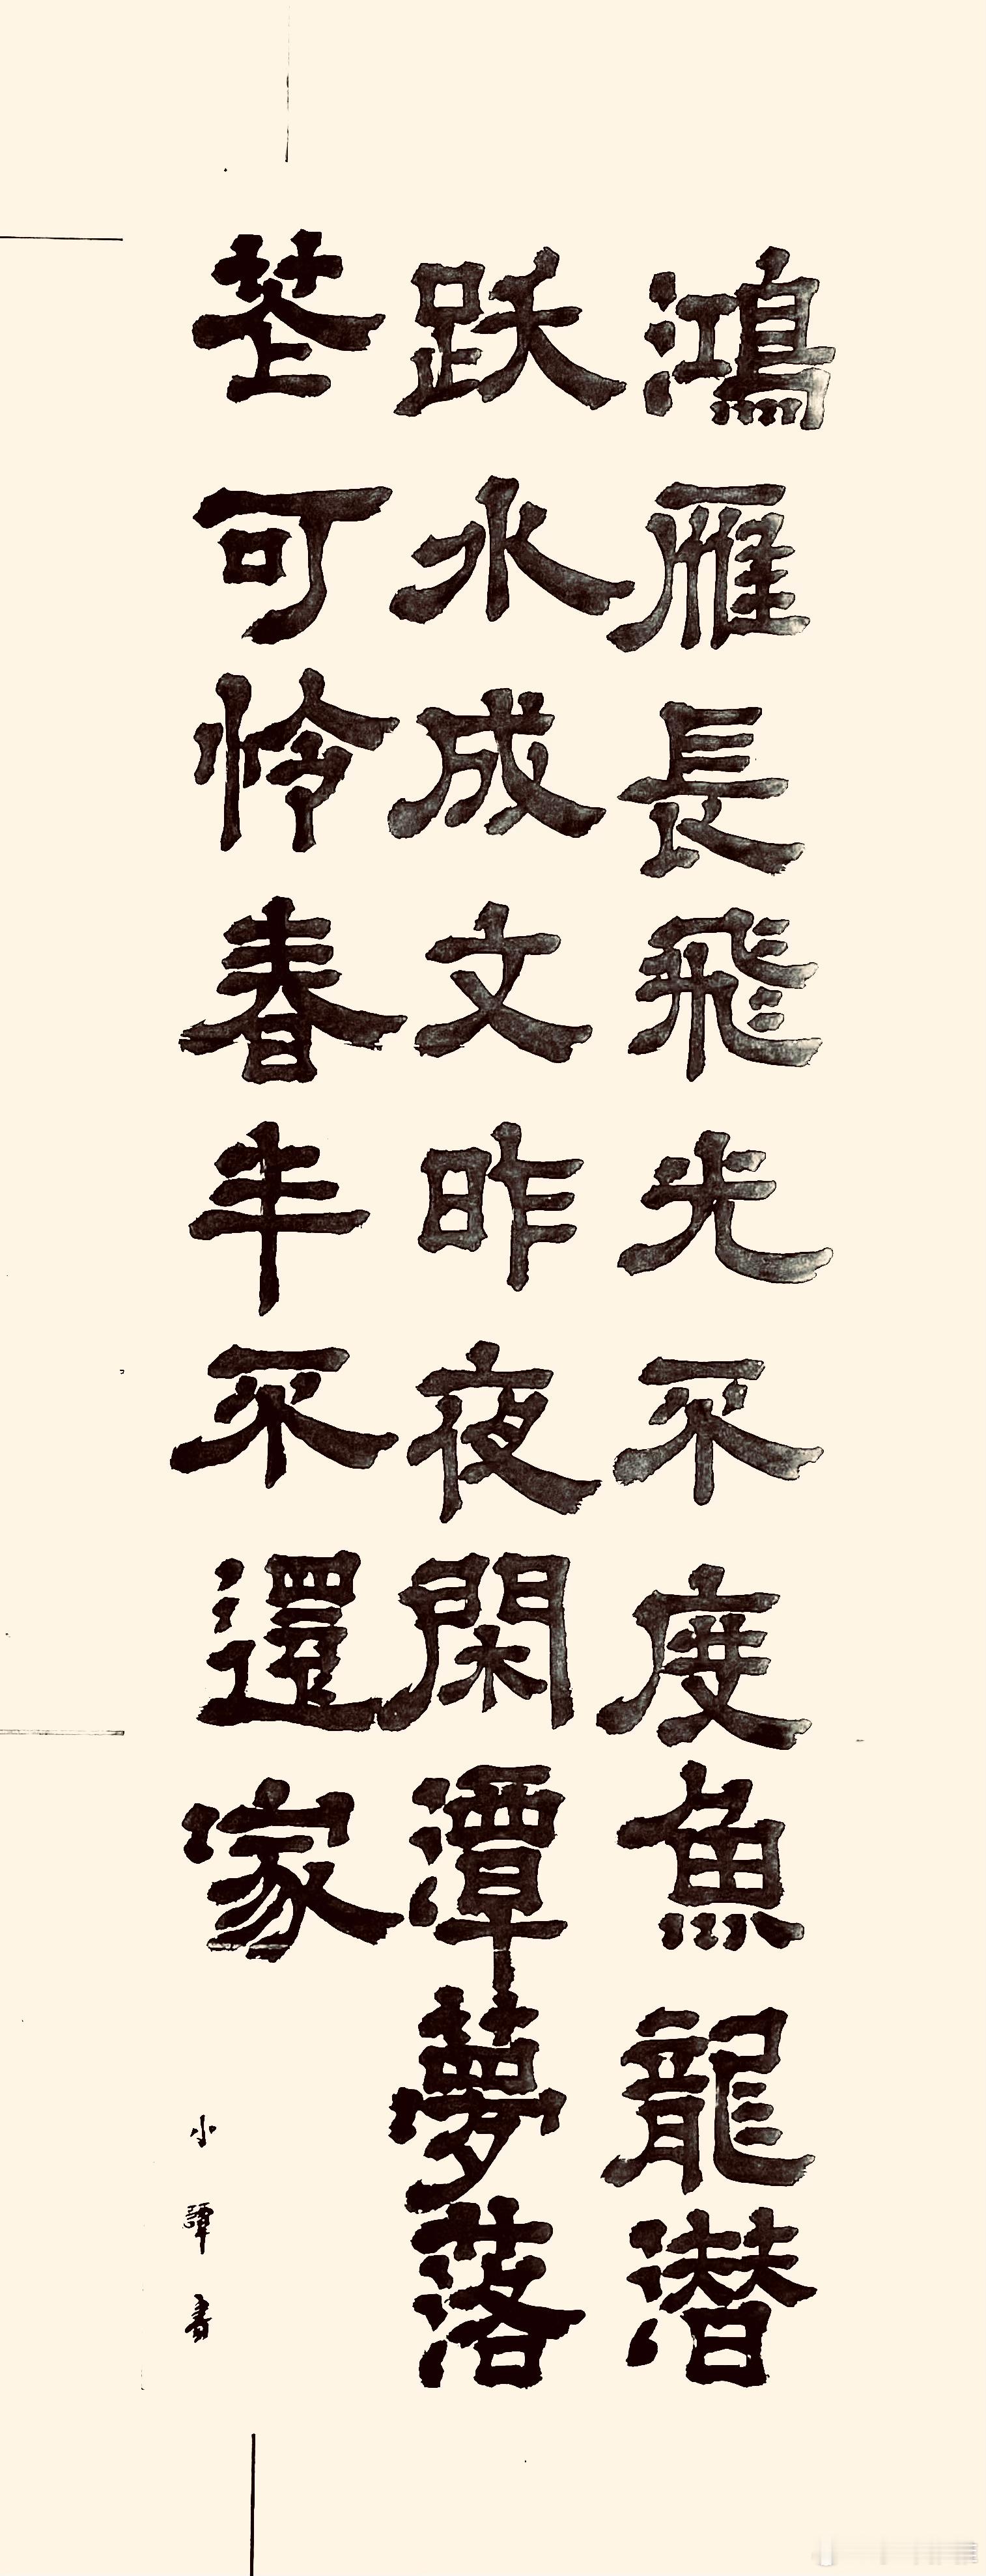 鴻雁長飛光不度魚龍潛
跃水成文昨夜閑潭夢落
花可怜春半不還家
小譚書